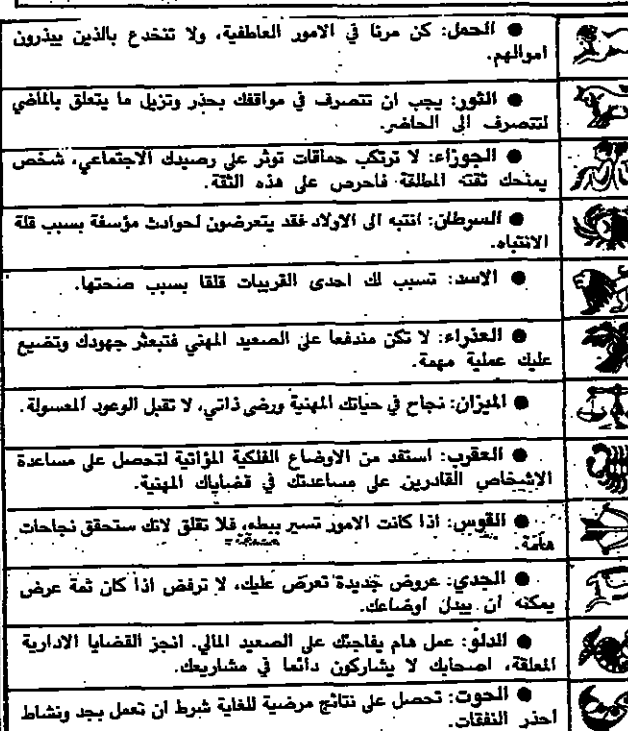 ● الحمل: كن مرنا في الامور العاطفية، ولا تنخدع بالذين يبذرون
اموالهم.
● الثور: يجب ان تتصرف في مواقفك بحذر وتزيل ما يتعلق بالماضي
لتتصرف الى الحاضر.
● الجوزاء: لا ترتكب حماقات توثر على رصيدك الاجتماعي، شخص
يمنحك ثقته المطلقة فاحرص على هذه الثقة.
● السرطان: انتبه الى الاولاد فقد يتعرضون لحوادث مؤسفة بسبب قلة
الانتباه.
● الاسد: تسبب لك احدى القريبات قلقا بسبب صحتها.
● العذراء: لا تكن مندفعا على الصعيد المهني فتبعثر جهودك وتضيع
عليك عملية مهمة.
● الميزان: نجاح في حياتك المهنية ورضى ذاتي، لا تقبل الوعود المعسولة.
● العقرب: استفد من الاوضاع الفلكية المؤاتية لتحصل على مساعدة
الاشخاص القادرين على مساعدتك في قضاياك المهنية.
● القوس: اذا كانت الامور تسير ببطء، فلا تقلق لانك ستحقق نجاحات
هامة.
● الجدي: عروض جديدة تعرض عليك، لا ترفض اذا كان ثمة عرض
يمكنه ان يبدل اوضاعك.
● الدلو: عمل هام يفاجئك على الصعيد المالي. انجز القضايا الادارية
المعلقة، اصحابك لا يشاركون دائما في مشاريعك.
● الحوت: تحصل على نتائج مرضية للغاية شرط ان تعمل بجد ونشاط
احذر النفقات.